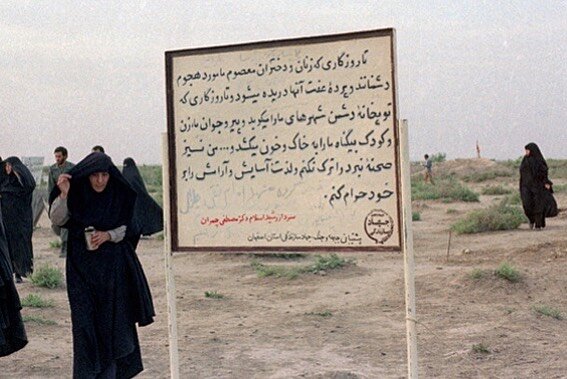 تا روزگاری که زنان و دختران معصوم ما مورد هجوم
دشمنند و پردهٔ عفت آنها دریده میشود و تا روزگاری که
توپخانهٔ دشمن شهرهای ما را میکوبد و پیر و جوان ما، زن
و کودک بیگناه ما را به خاک و خون میکشد و... من نیز
صحنهٔ نبرد را ترک نکنم و لذت آسایش و آرامش را بر
خود حرام کنم.
سردار رشید اسلام دکتر مصطفی چمران
پشتیبانی جبهه و جنگ جهاد سازندگی استان اصفهان
جهاد سازندگی